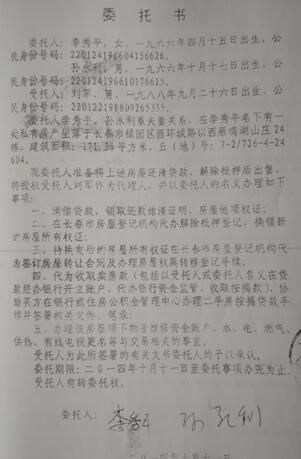 委 托 书
委托人:李秀平,女,一九六六年四月十五日出生,公
民身份号码:220124196604156626。
孙永利,男,一九六六年十月十七日出生,公
民身份号码:220124196610176615。
受托人:刘军,男,一九八八年九月二十六日出生,公
民身份号码:220122198809265355。
委托人李秀平、孙永利系夫妻关系,在李秀平名下有一
处私有房产坐落于长春市绿园区西环城路以西雁鸣湖山庄24
栋,建筑面积:171.36平方米,丘(地)号:7-2/726-4-24
604。
现委托人准备将上述房屋还清贷款、解除抵押后出售,
特授权受托人刘军作为代理人,并以委托人的名义办理如下
事项:
一、清偿贷款,领取还款结清证明、房屋他项权证;
二、在长春市房屋登记机构代办解除抵押登记,换领新
的房屋所有权证;
三、持换发后的房屋所有权证在长春市房屋登记机构代
为签订房屋转让合同及办理房屋权属转移登记手续;
四、代为收取卖房款(包括以受托人或委托人名义在贷
款经办银行开立账户、代办银行资金监管、收取按揭款)、协
助买方在银行或住房公积金管理中心办理二手房按揭贷款手
续并签署相关文件、笔录;
五、办理该房屋项下物业维修资金账户、水、电、燃气、
供热、有线电视更名等与交易相关的事宜。
受托人为此所签署的有关文书委托人均予以承认。
委托期限:二0一四年十月十一日至委托事项办完为止。
受托人有转委托权。
委托人: 李秀平 孙永利
二0一四年十月十一日